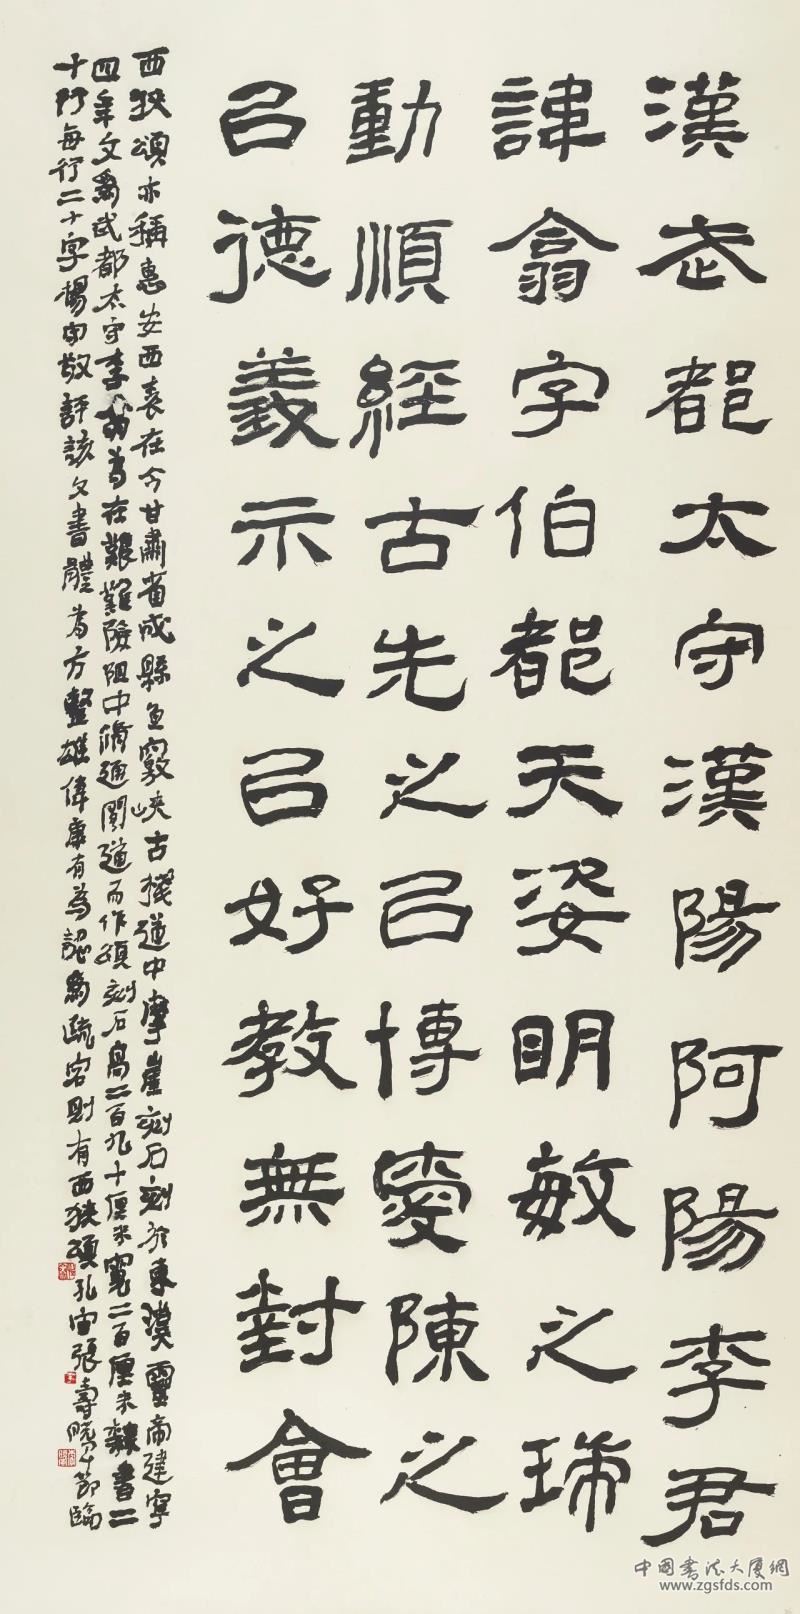 漢武都太守漢陽阿陽李君
諱翕字伯都天姿明敏之瑞
動順經古先之㠯博愛陳之
㠯德義示之㠯好教無對會
西狹頌亦稱惠安西表在今甘肅省成縣魚竅峽古棧道中摩崖刻石刻於東漢靈帝建寧
四年文為武都太守李翕為在艱難險阻中修通閣道而作頌刻石高二百九十厘米寬二百厘米隸書二
十行每行二十字楊守敬評該文書體為方整雄偉康有為認為疏宕則有西狹頌孔宙張壽曉節臨
中国书法大厦網
www.zgsfds.com